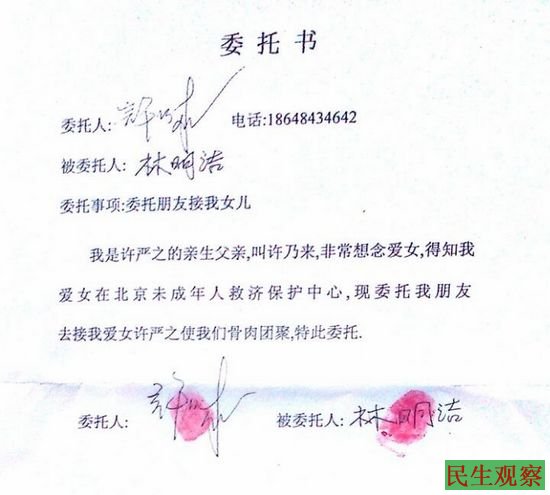 委托书
委托人: 许乃来 电话:18648434642
被委托人: 林明洁
委托事项:委托朋友接我女儿
我是许严之的亲生父亲,叫许乃来,非常想念爱女,得知我
爱女在北京未成年人救济保护中心,现委托我朋友
去接我爱女许严之使我们骨肉团聚,特此委托.
委托人: 许乃来 被委托人: 林明洁
民生观察